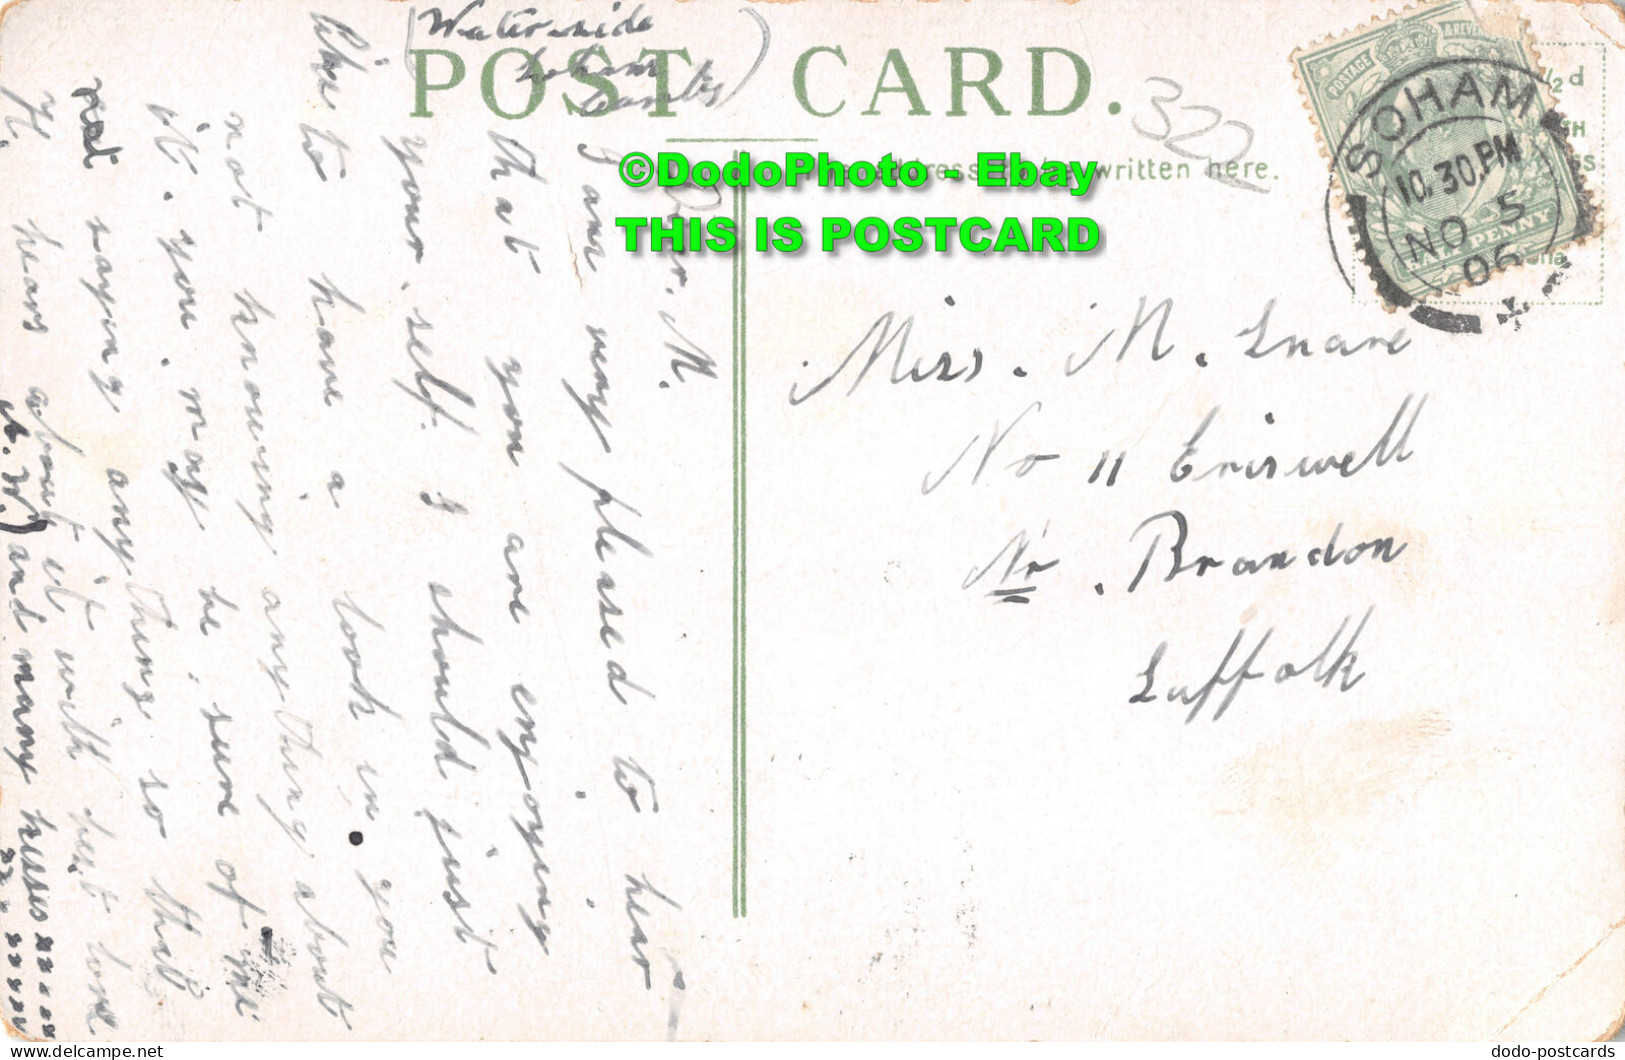 (Water side
Soham
Cambs)
POST CARD.
322
The address to be written here.
©DodoPhoto - Ebay
THIS IS POSTCARD
POSTAGE
HALF PENNY
SOHAM
10.30.PM
NO 5
06
½d
Miss. M. Snare
No 11 Eriswell
Nr. Brandon
Suffolk
Dear. M.
I am very pleased to hear
that you are enjoying
your self. I should just
like to have a look in you
not knowing anything about
it. you. may be. sure of me
not saying anything so that
H. hears about it with best love
A. W.) and many kisses x x x x x
dodo-postcards